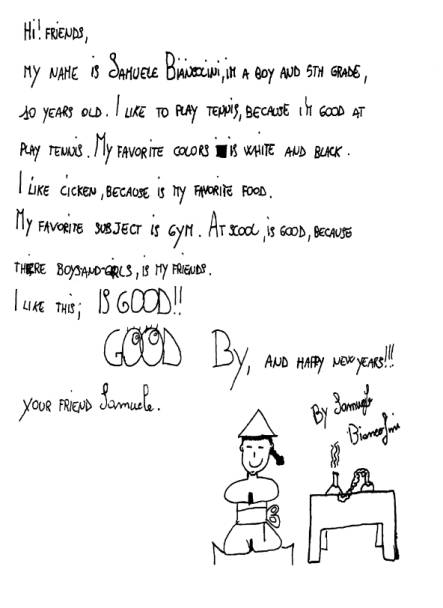 Hi! FRIENDS,
MY NAME IS SAMUELE BIANSOINI, IM A BOY AND 5TH GRADE,
10 YEARS OLD. I LIKE TO PLAY TENNIS, BECAUSE I'M GOOD AT
PLAY TENNIS. MY FAVORITE COLORS IS WHITE AND BLACK.
I LIKE CICKEN, BECAUSE IS MY FAVORITE FOOD.
MY FAVORITE SUBJECT IS GYM. AT SCOOL, IS GOOD, BECAUSE
THERE BOYS AND GIRLS, IS MY FRIENDS.
I LIKE THIS; IS GOOD!!
GOOD By, AND HAPPY NEW YEARS!!!
YOUR FRIEND Samuele.
By Samuele